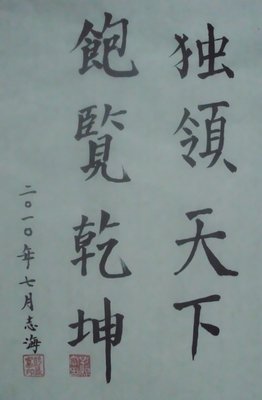 独領天下
飽覧乾坤
二〇一〇年七月志海